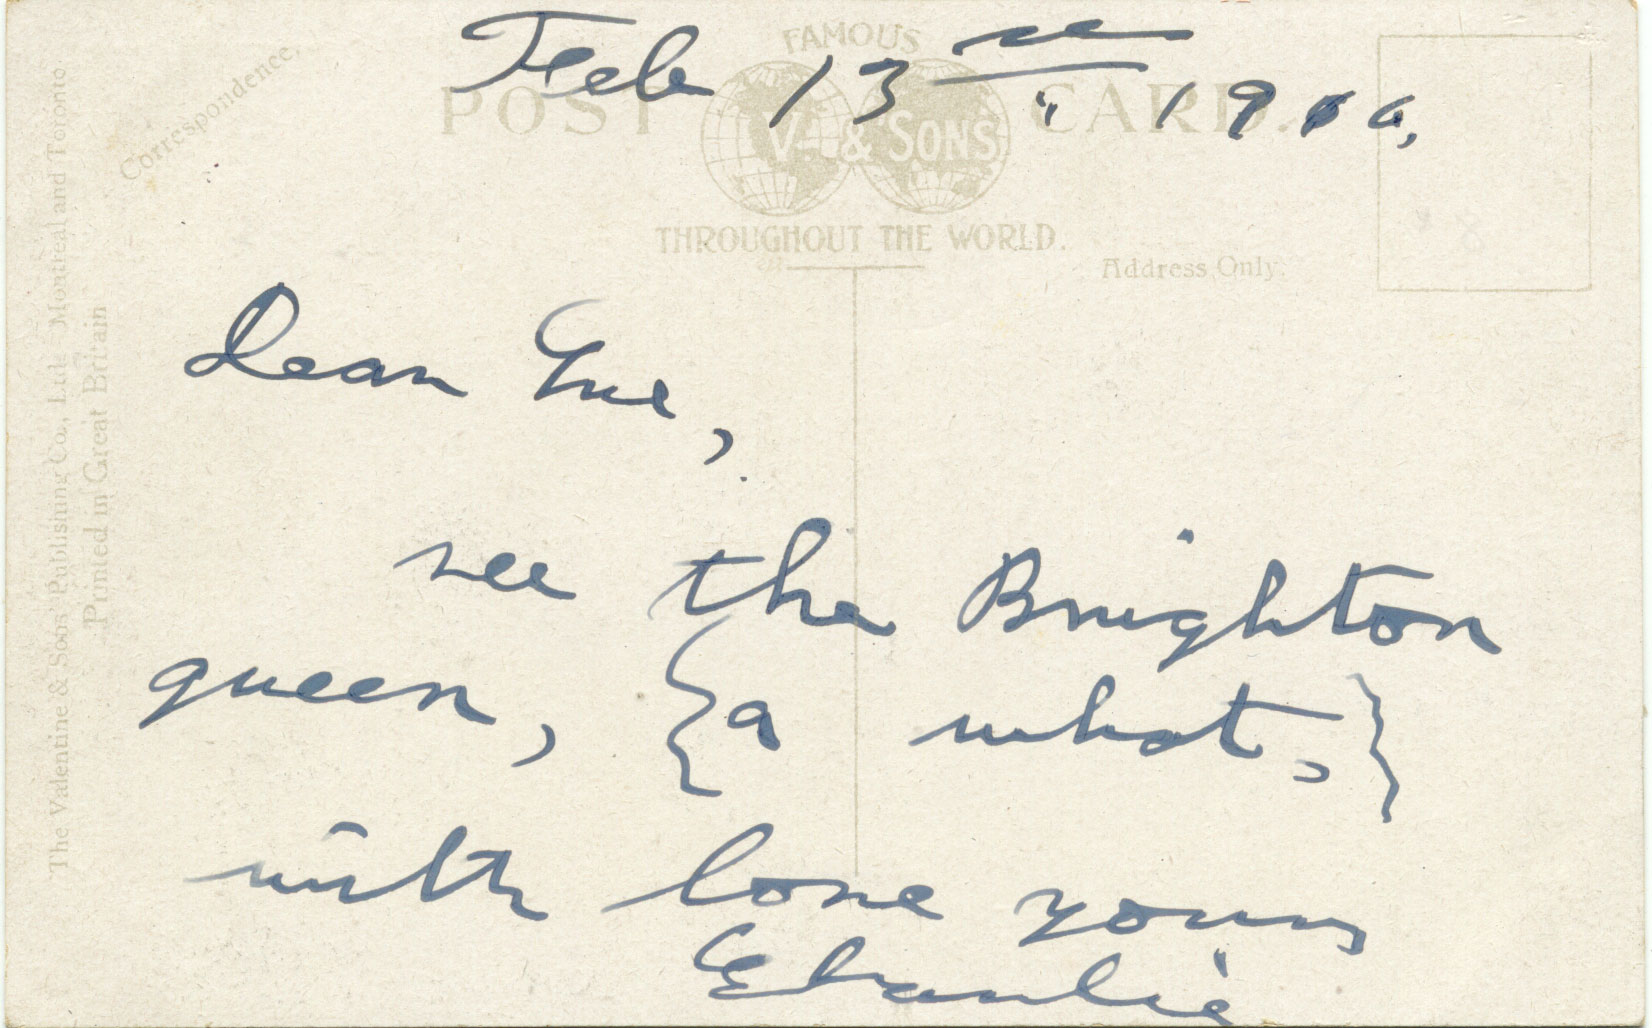 Feb 13 1910,
FAMOUS
POST CARD.
V. & SONS
THROUGHOUT THE WORLD.
Correspondence.
Address Only.
The Valentine & Sons' Publishing Co., Ltd. Montreal and Toronto
Printed in Great Britain
Dear
see the Brighton
queen, {a what,}
with love yours